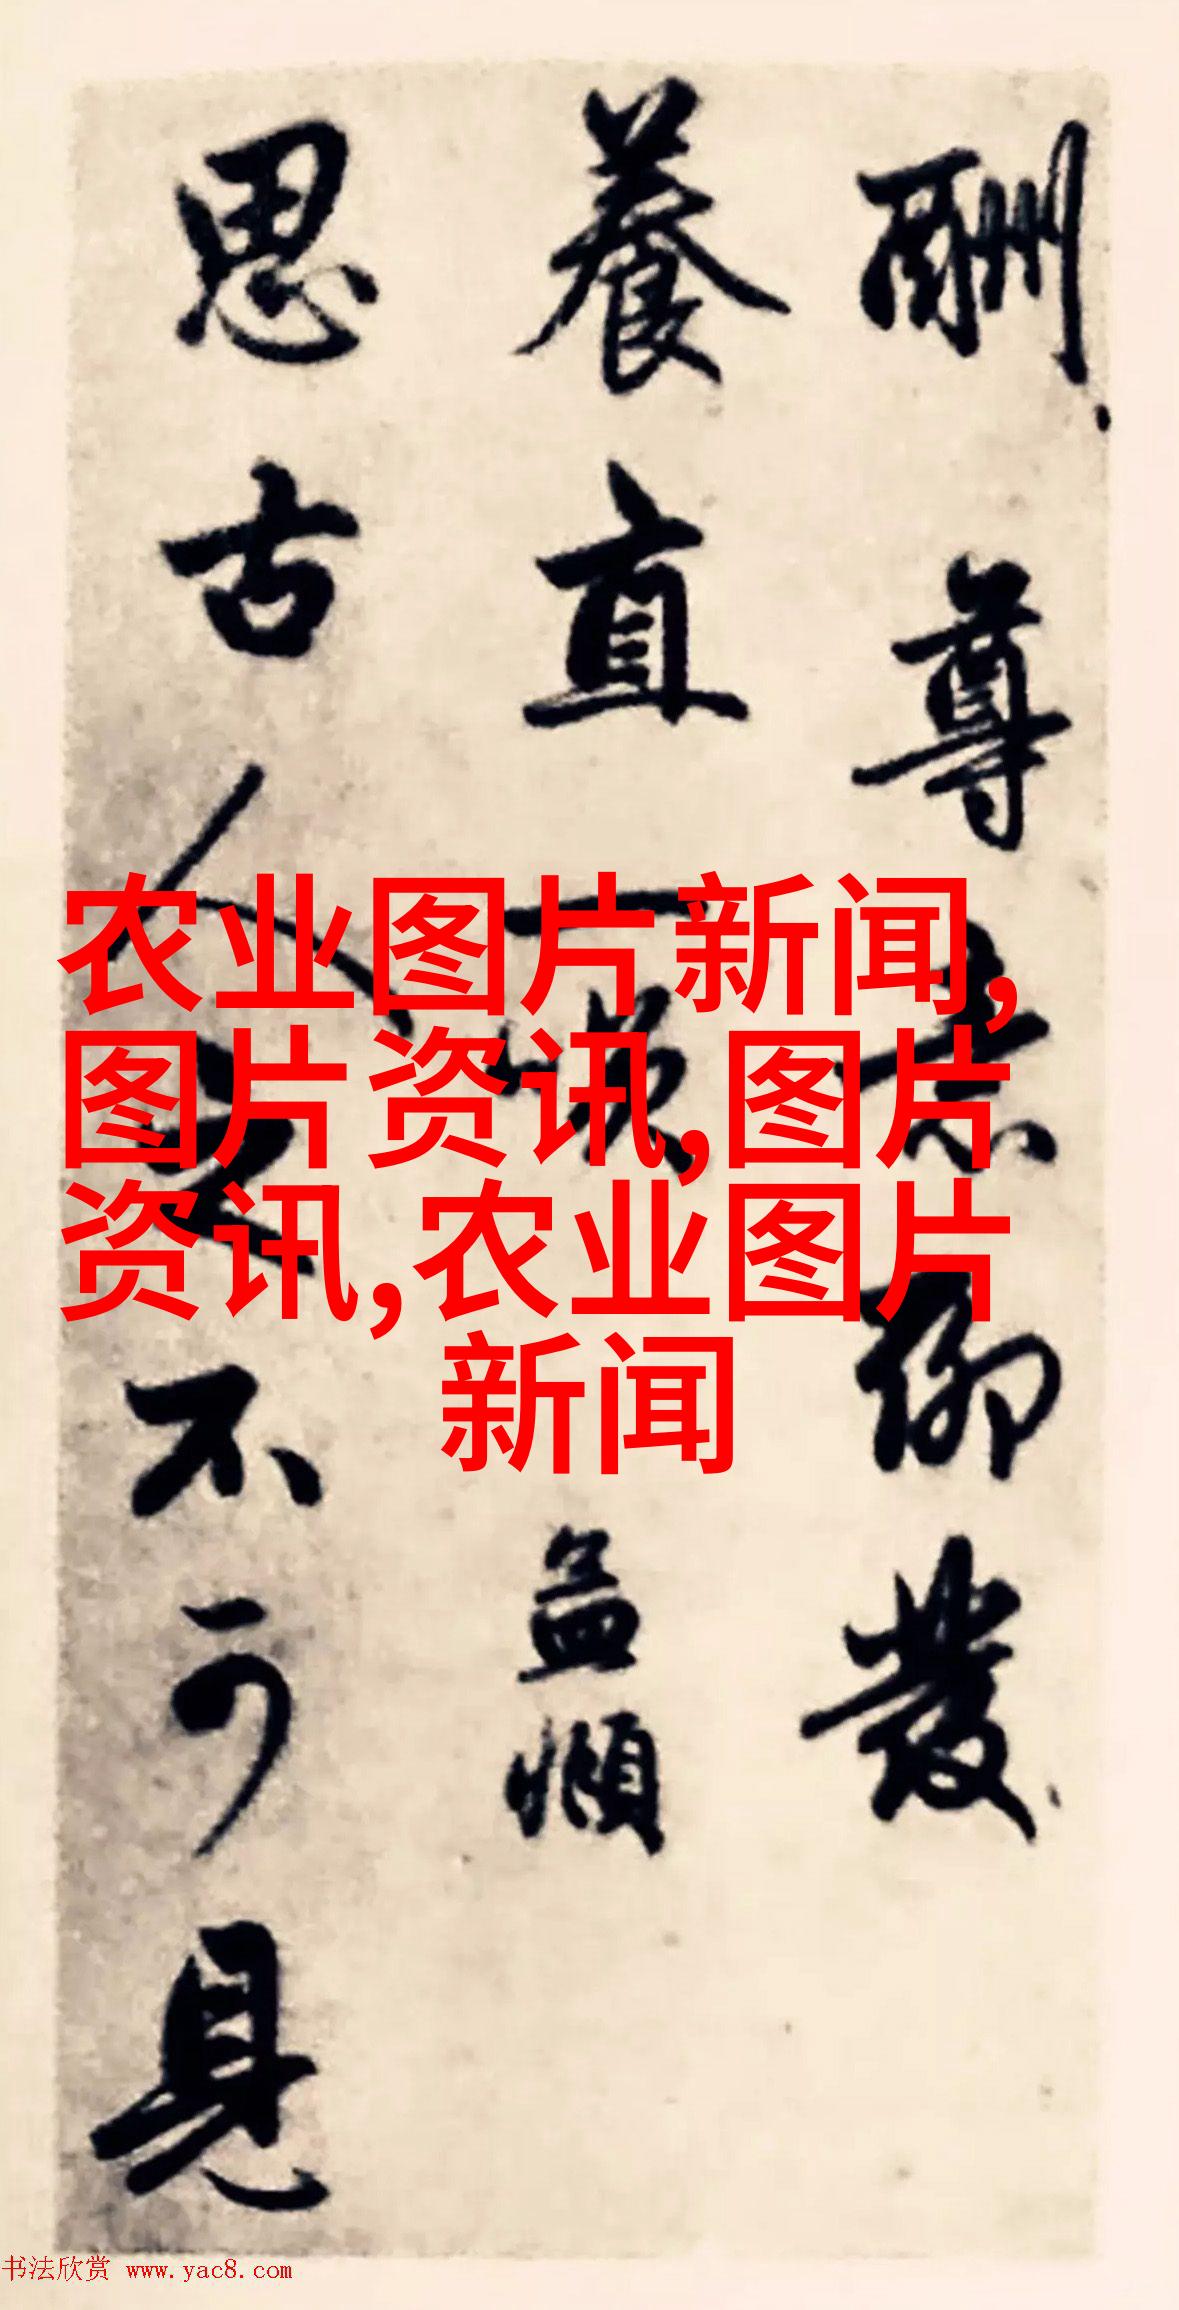 酬尊聊發
養直一 孟頫
思古人之不可見
农业图片新闻,
图片资讯,图片
资讯,农业图片
新闻
书法欣赏 www.yac8.com